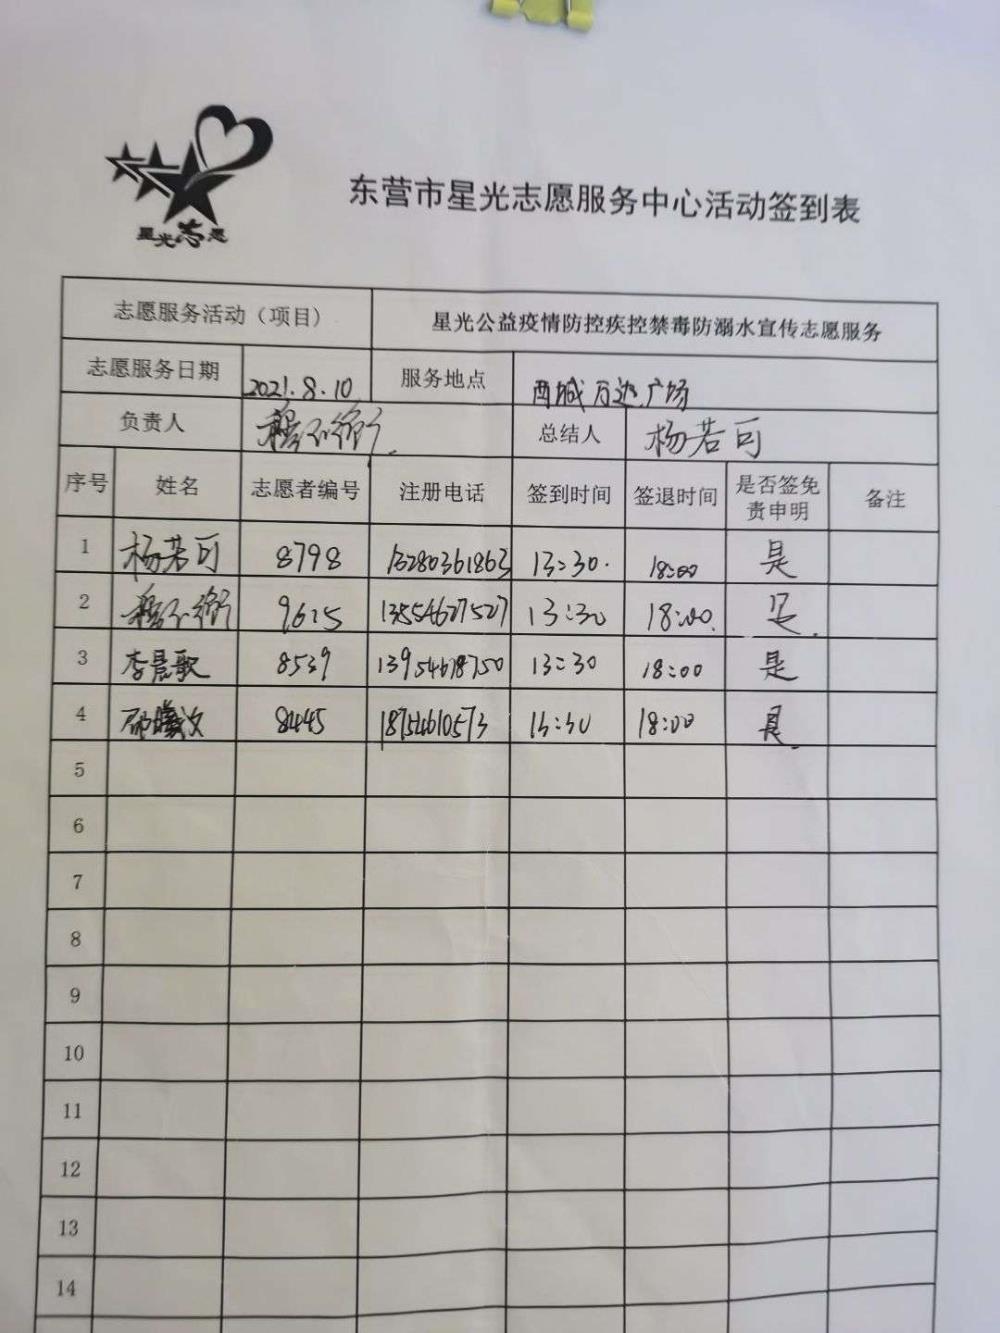 星光志愿
东营市星光志愿服务中心活动签到表
志愿服务活动（项目） 星光公益疫情防控疾控禁毒防溺水宣传志愿服务
志愿服务日期 2021.8.10 服务地点 西城万达广场
负责人 总结人 杨若可
序号 姓名 志愿者编号 注册电话 签到时间 签退时间 是否签免责申明 备注
1 杨若可 8798 13280361863 13:30. 18:00 是
2 9615 13554627527 13:30 18:00. 是.
3 李晨歌 8539 13954678750 13:30 18:00 是
4 邵曦汶 8445 18754610573 13:30 18:00 是.
5
6
7
8
9
10
11
12
13
14